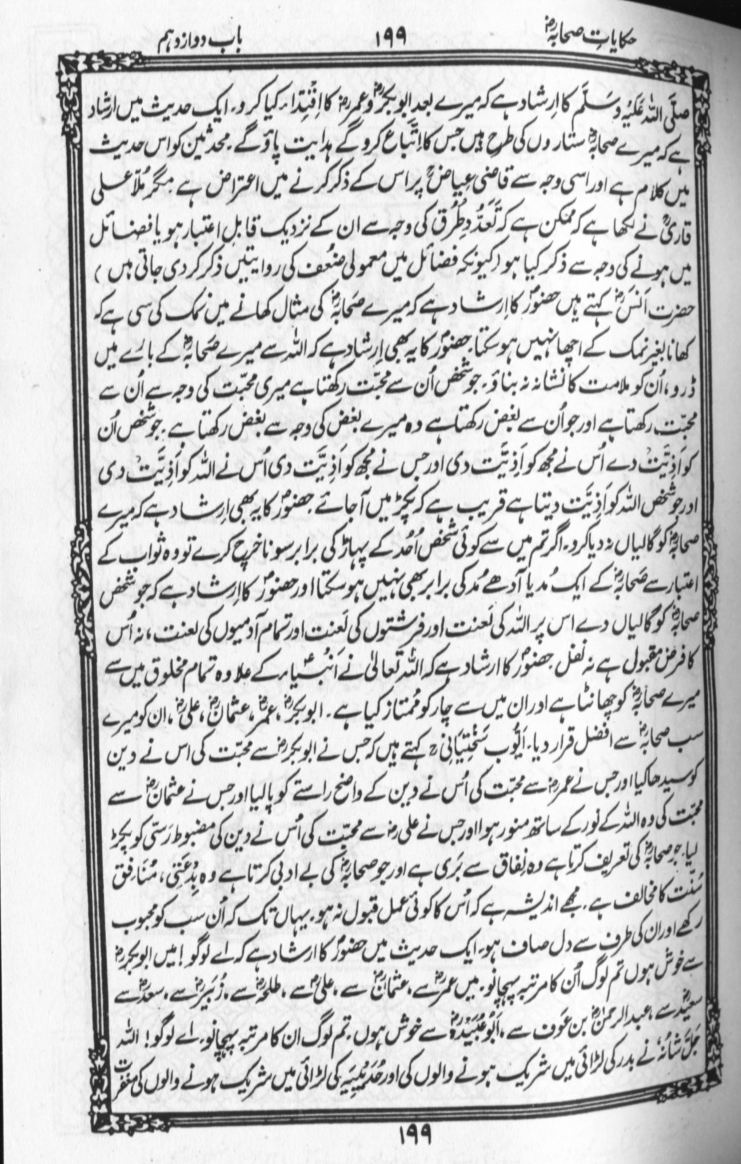 حکایاتِ صحابہؓ ۱۹۹ باب دوازدہم
صلَّی اللہُ عَلَیْہِ وَسَلَّم کا اِرشاد ہے کہ میرے بعد ابوبکرؓ وعمرؓ کا اِقْتِداء کیا کرو۔ ایک حدیث میں ارشاد
ہے کہ میرے صحابہؓ ستاروں کی طرح ہیں جس کا اِتِّباع کرو گے ہدایت پاؤ گے۔ محدثین کو اس حدیث
میں کلام ہے اور اسی وجہ سے قاضی عِیاضؒ پر اس کے ذکر کرنے میں اعتراض ہے۔ مگر ملّا علی
قاریؒ نے لکھا ہے کہ ممکن ہے کہ تَعَدُّدِ طُرُق کی وجہ سے ان کے نزدیک قابلِ اعتبار ہو یا فضائل
میں ہونے کی وجہ سے ذکر کیا ہو (کیونکہ فضائل میں معمولی ضُعف کی روایتیں ذکر کردی جاتی ہیں )
حضرت اَنَسؓ کہتے ہیں حضورؐ کا ارشاد ہے کہ میرے صَحابہؓ کی مثال کھانے میں نمک کی سی ہے کہ
کھانا بغیر نمک کے اچھا نہیں ہوسکتا۔ حضورؐ کا یہ بھی ارشاد ہے کہ اللہ سے میرے صَحابہؓ کے بارے میں
ڈرو، اُن کو ملامت کا نشانہ نہ بناؤ۔ جو شخص اُن سے محبّت رکھتا ہے میری محبّت کی وجہ سے اُن سے
محبّت رکھتا ہے اور جو اُن سے بُغض رکھتا ہے وہ میرے بُغض کی وجہ سے بُغض رکھتا ہے۔ جو شخص اُن
کو اَذِیَّت دے اُس نے مجھ کو اَذِیَّت دی اور جس نے مجھ کو اَذِیَّت دی اُس نے اللہ کو اَذِیَّت دی
اور جو شخص اللہ کو اَذِیَّت دیتا ہے قریب ہے کہ پکڑ میں آجائے۔ حضورؐ کا یہ بھی ارشاد ہے کہ میرے
صحابہؓ کو گالیاں نہ دیا کرو۔ اگر تم میں سے کوئی شخص اُحُد کے پہاڑ کی برابر سونا خرچ کرے تو وہ ثواب کے
اعتبار سے صَحابہؓ کے ایک مُد یا آدھے مُد کی برابر بھی نہیں ہوسکتا اور حضورؐ کا ارشاد ہے کہ جو شخص
صحابہؓ کو گالیاں دے اس پر اللہ کی لَعنت اور فرشتوں کی لَعنت اور تمام آدمیوں کی لعنت، نہ اُس
کا فرض مقبول ہے نہ نفل۔ حضورؐ کا ارشاد ہے کہ اللہ تعالیٰ نے اَنْبِیاءؑ کے علاوہ تمام مخلوق میں سے
میرے صحابہؓ کو چھانٹا ہے اور ان میں سے چار کو مُمتاز کیا ہے۔ ابوبکرؓ، عمرؓ، عثمانؓ، علیؓ، ان کو میرے
سب صحابہؓ سے افضل قرار دیا۔ اَیُّوب سَخْتِیانیؒ کہتے ہیں کہ جس نے ابوبکرؓ سے محبّت کی اس نے دین
کو سیدھا کیا اور جس نے عمرؓ سے محبّت کی اُس نے دین کے واضح راستے کو پالیا اور جس نے عثمانؓ سے
محبّت کی وہ اللہ کے نور کے ساتھ منور ہوا اور جس نے علیؓ سے محبّت کی اُس نے دین کی مضبوط رَسّی کو پکڑ
لیا۔ جو صحابہؓ کی تعریف کرتا ہے وہ نِفاق سے بَری ہے اور جو صحابہؓ کی بے ادبی کرتا ہے وہ بِدْعَتی، مُنافق
سُنَّت کا مخالف ہے۔ مجھے اندیشہ ہے کہ اُس کا کوئی عمل قبول نہ ہو۔ یہاں تک کہ اُن سب کو محبوب
رکھے اور ان کی طرف سے دل صاف ہو۔ ایک حدیث میں حضورؐ کا ارشاد ہے کہ اے لوگو! میں ابوبکرؓ
سے خوش ہوں تم لوگ اُن کا مرتبہ پہچانو۔ میں عمرؓ سے، عثمانؓ سے، علیؓ سے، طلحہؓ سے، زُبَیرؓ سے، سعدؓ سے
سعیدؓ سے، عبدالرحمٰنؓ بن عَوف سے، اَبُو عُبَیْدہؓ سے خوش ہوں۔ تم لوگ ان کا مرتبہ پہچانو۔ اے لوگو! اللہ
جَلَّ شَانُہٗ نے بدر کی لڑائی میں شریک ہونے والوں کی اور حُدَیْبِیَہ کی لڑائی میں شریک ہونے والوں کی مغفرت
۱۹۹